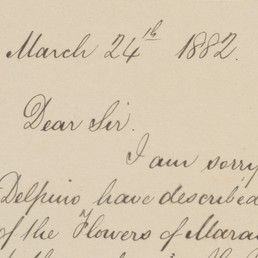 March 24th 1882.
Dear Sir.
I am sorry
Delpino have described
of the Flowers of Maran